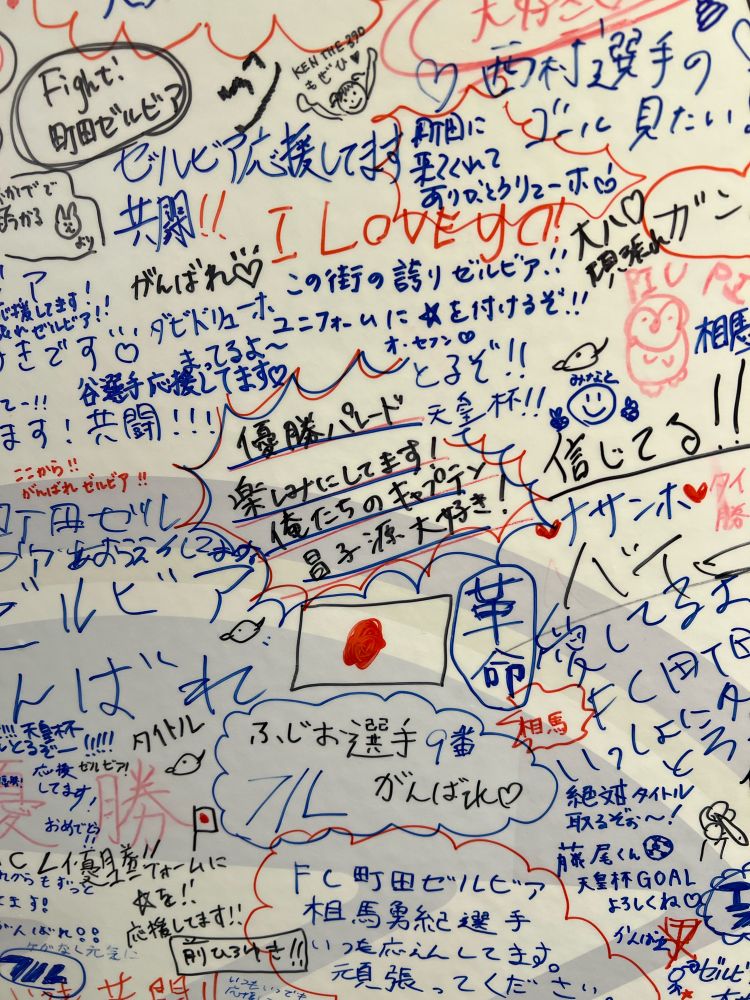 大好き
Fight!
町田ゼルビア
KEN THE 390
もぜひ♥
♡西村選手の
ゴール 見たい!
ゼルビア応援してます
共闘!!
町田に
来てくれて
ありがとうリューホ♡
I LOVE YOU!
まうかる
より
大八♡
頑張れ
ガン
がんばれ♡
この街の誇り ゼルビア!!
ユニフォームに☆を付けるぞ!!
応援してます!
ゼルビア!!
きです♡
ダビド
リューホ
まってるよ~
オ・セフン♡
とるぞ!!
天皇杯!!
谷選手応援してます♡
ます!共闘!!!
相馬
みなと
信じてる!!
ここから!!
がんばれゼルビア!!
優勝パレード
楽しみにしてます!
俺たちのキャプテン
昌子源大好き!
町田ゼル
ビア
ゼルビア
んばれ
ナサンホ♥
バイ
愛してるよ
FC町田
いっしょに
革命
相馬
タイ
勝
天皇杯
とるぞー!!!!!
タイトル
応援
してます!
ゼルビア!
優勝
おめでとう
!!
ふじお選手9番
がんばれ♡
絶対タイトル
取るぞぉ~!
藤尾くん
天皇杯GOAL
よろしくね♡
ACL優勝!!
ユニフォームに
☆を!!
これからもずっと
応援してます!!
がんばれ!!
ケガなし元気に
前ひろゆき!!
共闘!!
いつもいつでも
FC町田ゼルビア
相馬勇紀選手
いつも応えんしてます。
頑張ってください
がんばれ
ゼルビ